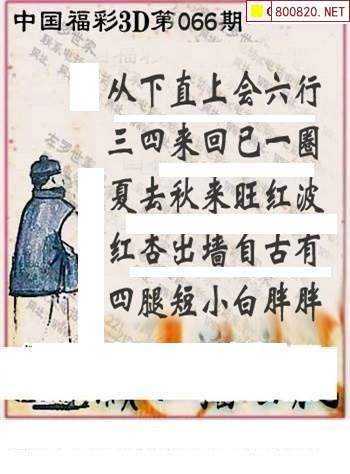 800820.NET
中国福彩3D第066期
从下直上会六行
三四来回已一圈
夏去秋来旺红波
红杏出墙自古有
四腿短小白胖胖